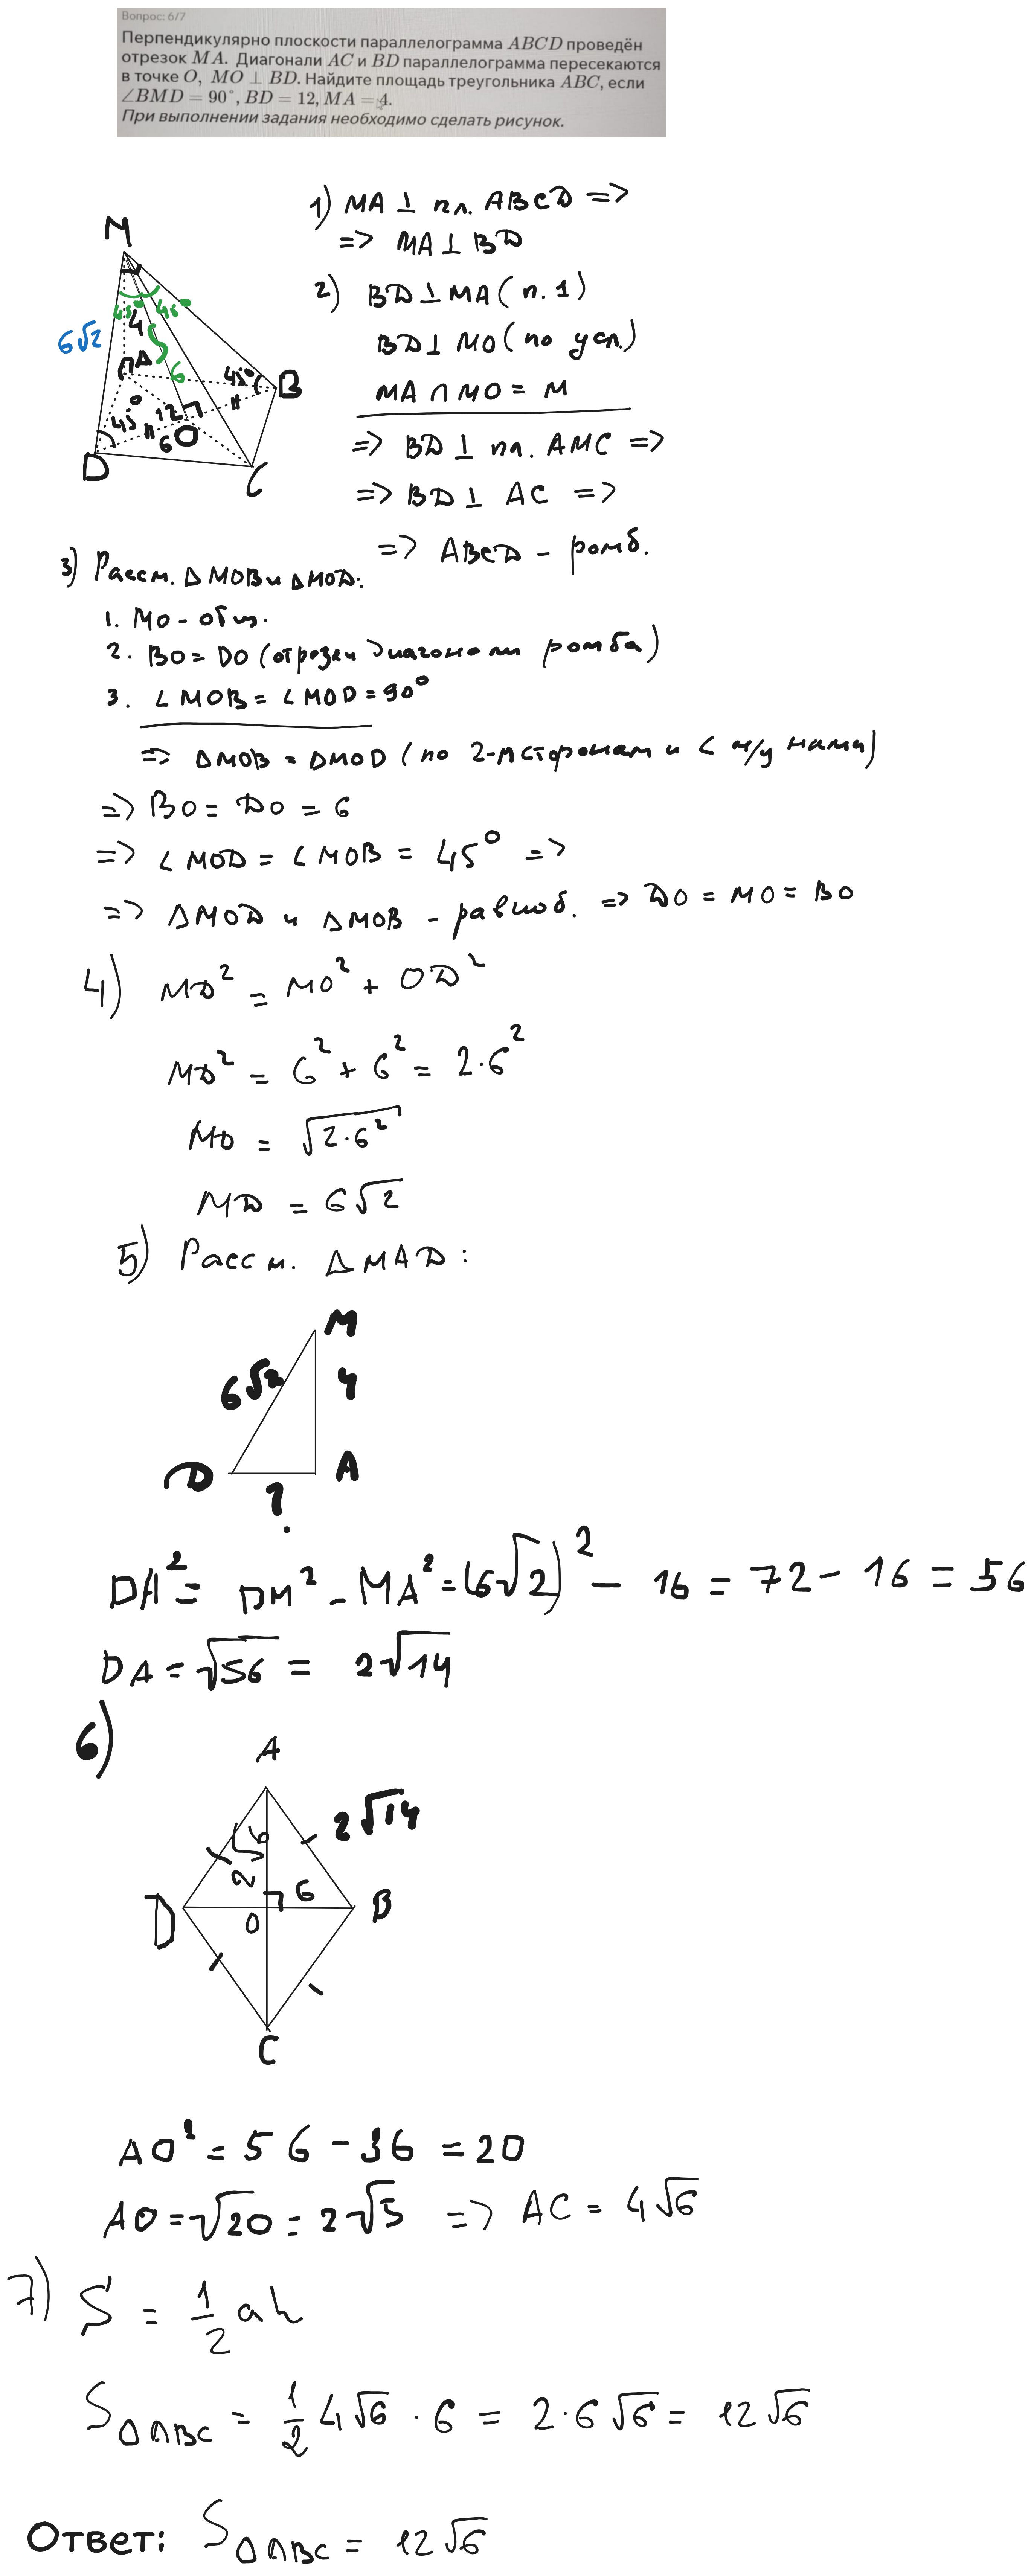 Вопрос: 6/7
Перпендикулярно плоскости параллелограмма ABCD проведён
отрезок MA. Диагонали AC и BD параллелограмма пересекаются
в точке O, MO ⊥ BD. Найдите площадь треугольника ABC, если
∠BMD = 90°, BD = 12, MA = 4.
При выполнении задания необходимо сделать рисунок.
1) MA ⊥ пл. ABCD =>
=> MA ⊥ BD
2) BD ⊥ MA (п. 1)
BD ⊥ MO (по усл.)
MA ∩ MO = M
=> BD ⊥ пл. AMC =>
=> BD ⊥ AC =>
=> ABCD - ромб.
M
45° 45°
6√2
4
A
6
45°
B
45°
12
O
6
D
C
3) Рассм. △MOB и △MOD:
1. MO - общ.
2. BO = DO (отрезки диагонали ромба)
3. ∠MOB = ∠MOD = 90°
=> △MOB = △MOD (по 2-м сторонам и ∠ м/у ними)
=> BO = DO = 6
=> ∠MOD = ∠MOB = 45° =>
=> △MOD и △MOB - равноб. => DO = MO = BO
4) MD² = MO² + OD²
MD² = 6² + 6² = 2·6²
MD = √2·6²
MD = 6√2
5) Рассм. △MAD:
M
6√2
4
D
A
?
DA² = DM² - MA² = (6√2)² - 16 = 72 - 16 = 56
DA = √56 = 2√14
6)
A
2√14
2√6
6
D
O
B
C
AO² = 56 - 36 = 20
AO = √20 = 2√5 => AC = 4√6
7) S = 1/2 ah
S△ABC = 1/2 4√6 · 6 = 2·6√6 = 12√6
Ответ: S△ABC = 12√6